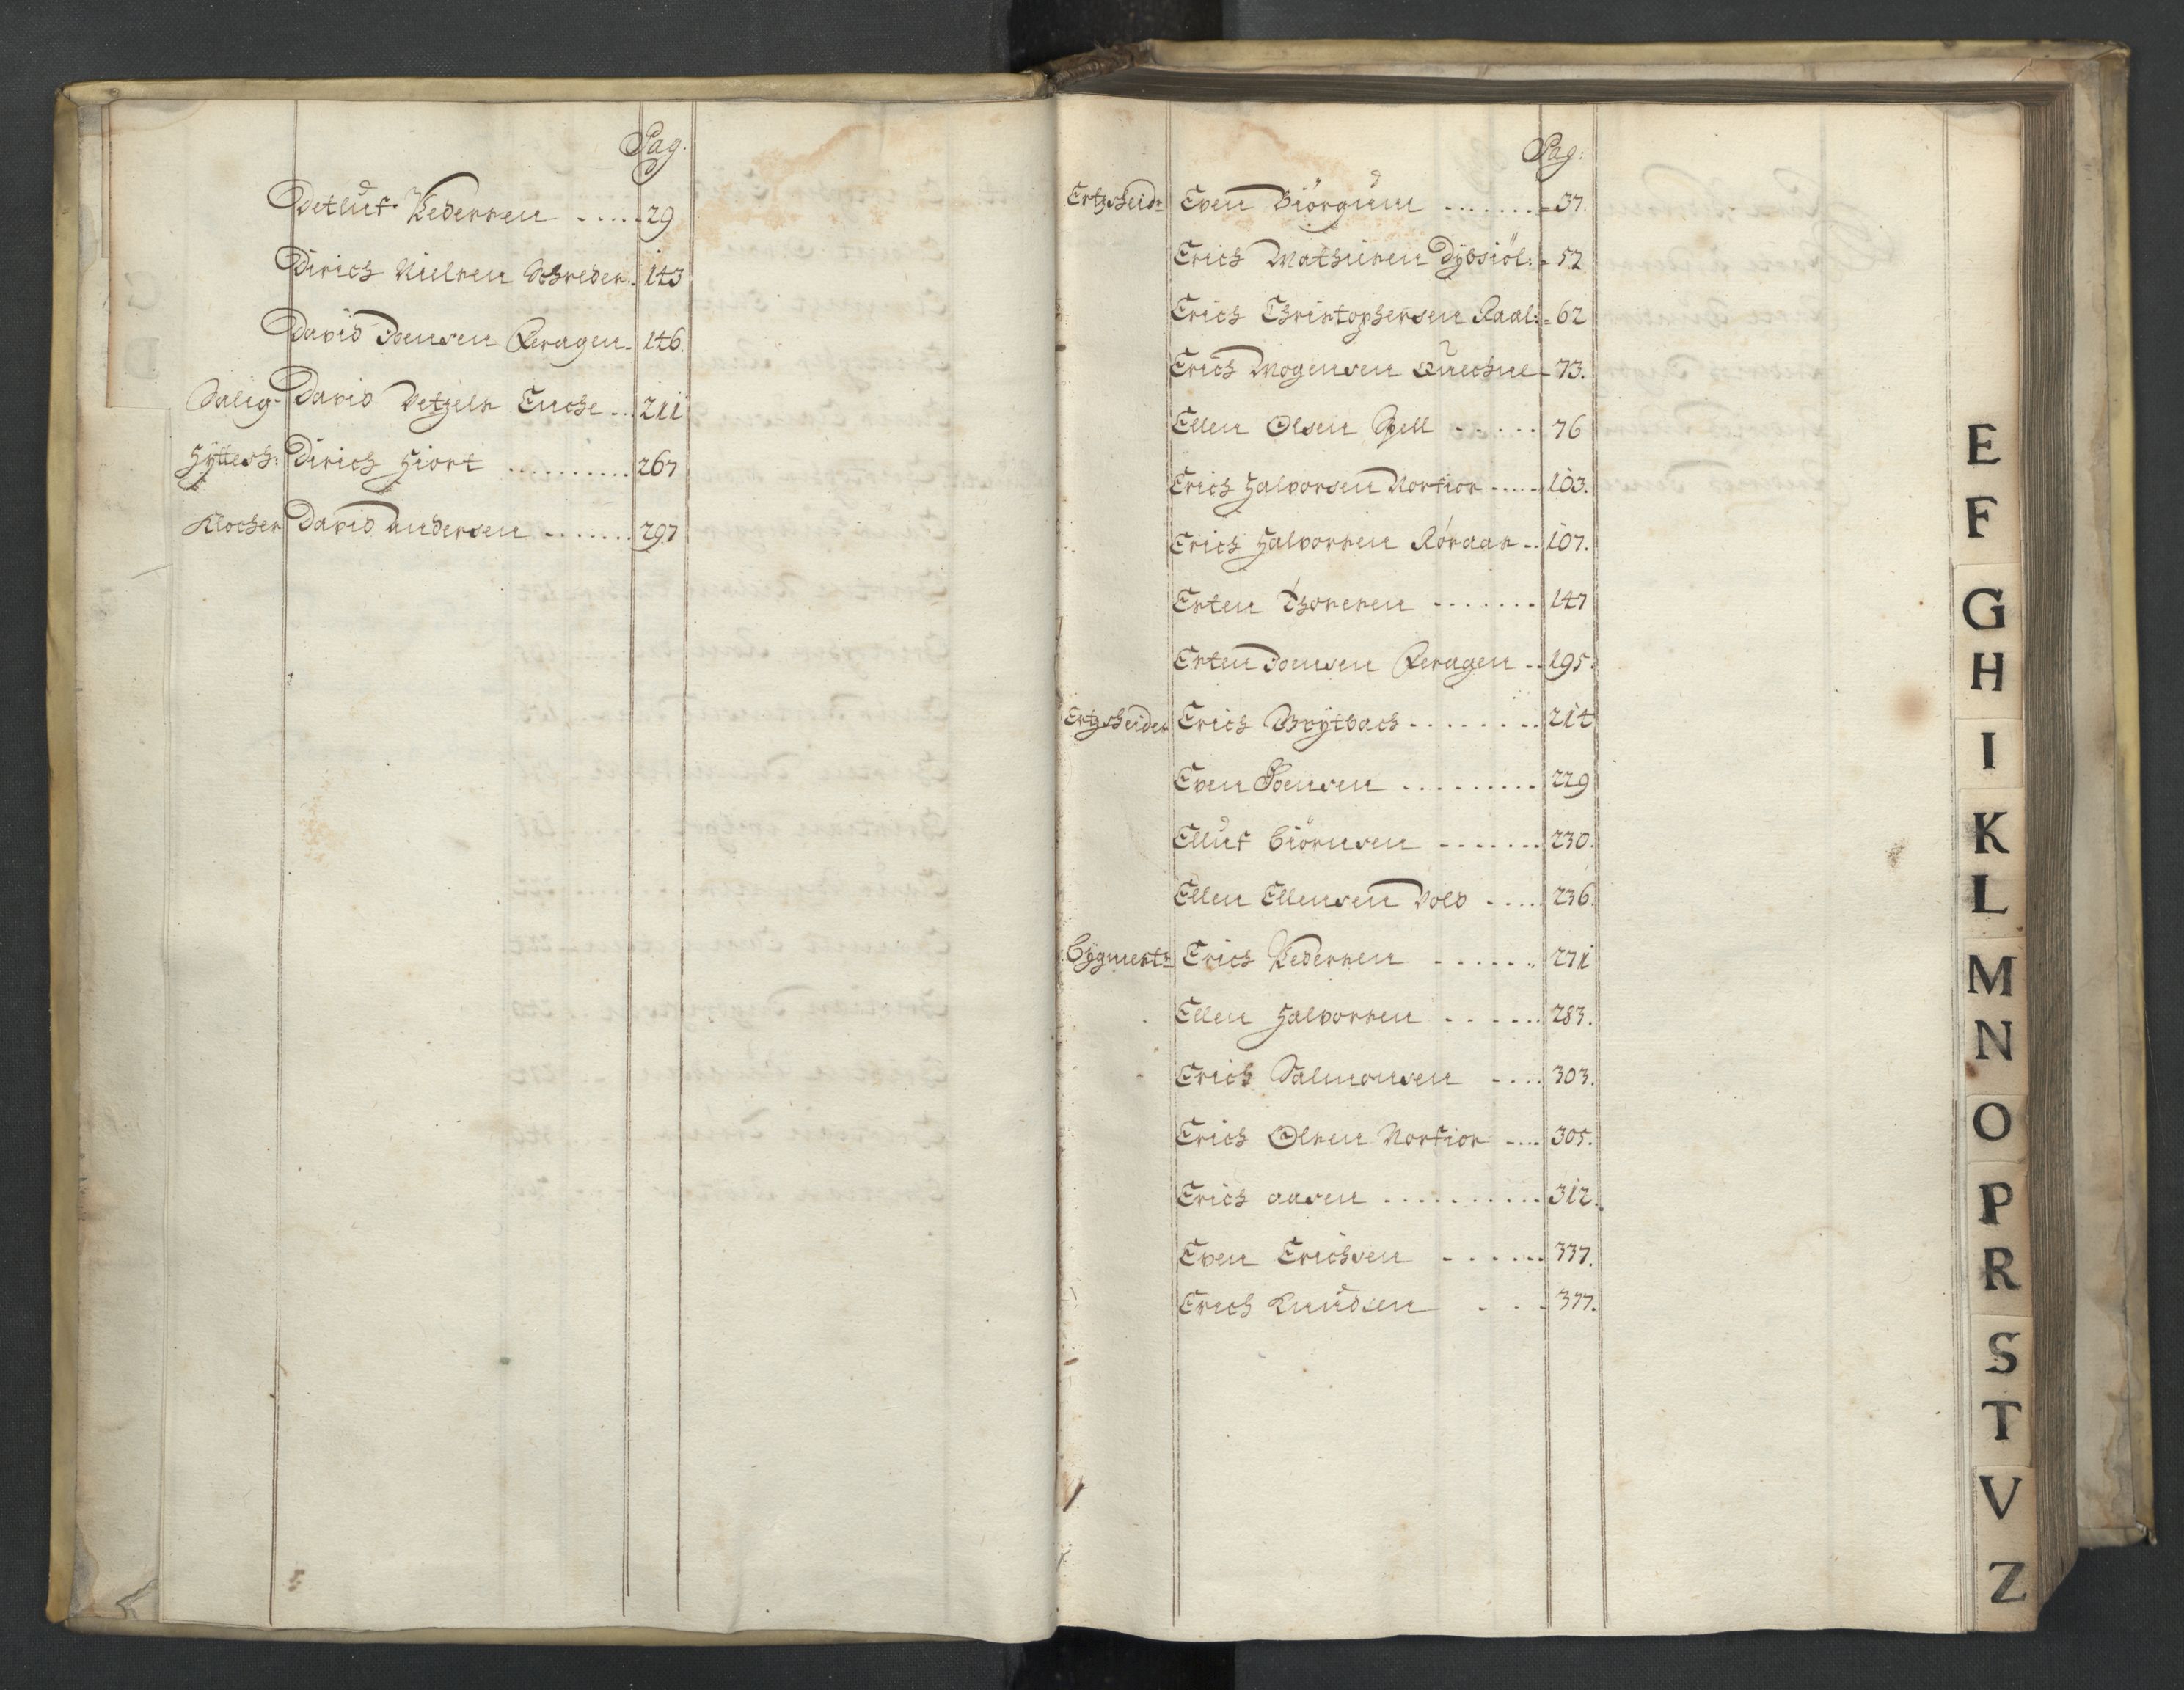 Pag.
Detluf Pedersen ..... 29
Dirich Nielsen Schreder. 143
David Joensen Reragen. 146.
Salig. David Vetzels Encke ... 211
Hÿttesch: Dirich Hiort .......... 267
Klocker David Andersen ....... 297
Pag:
Ertzscheidr Even Biörgum ....... 37.
Erich Mathiesen Dybsiöl: . 52
Erich Christophersen Raal: . 62
Erich Mogensen Quechne 73.
Ellen Olsen Spell ..... 76
Erich Halvorsen Norfior ..... 103.
Erich Halvorsen Röraas .. 107.
Esten Thoresen ....... 147
Esten Joensen Reragen .. 195.
Ertzscheider Erich Brÿtbach ........ 214
Even Joensen ......... 229
Elluf Biörnsen ....... 230.
Ellen Ellensen Vold .... 236.
Bÿgmestr Erich Pedersen ...... 271
Ellen Halvorsen ..... 283.
Erich Salmonsen .... 303.
Erich Olsen Norfior .... 305.
Erich Aasen .......... 312.
Even Erichsen ...... 337.
Erich Knudsen ... 377.
E
F
G
H
I
K
L
M
N
O
P
R
S
T
V
Z